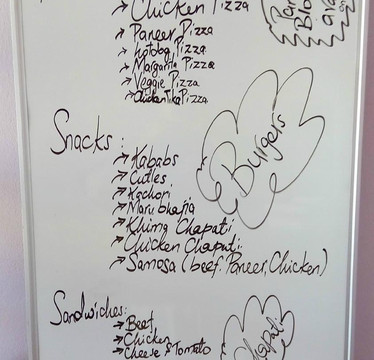 Chicken Pizza
Paneer Pizza
Hotdog Pizza
Margarita Pizza
Veggie Pizza
Chicken Tika Pizza
Snacks:
Kababs
Cutles
Kachori
Maru bhajia
Khima Chapati
Chicken Chapati
Samosa (beef. Paneer, Chicken)
Burgers
Sandwiches:
Beef
Chicken
Cheese & Tomato
Chapati